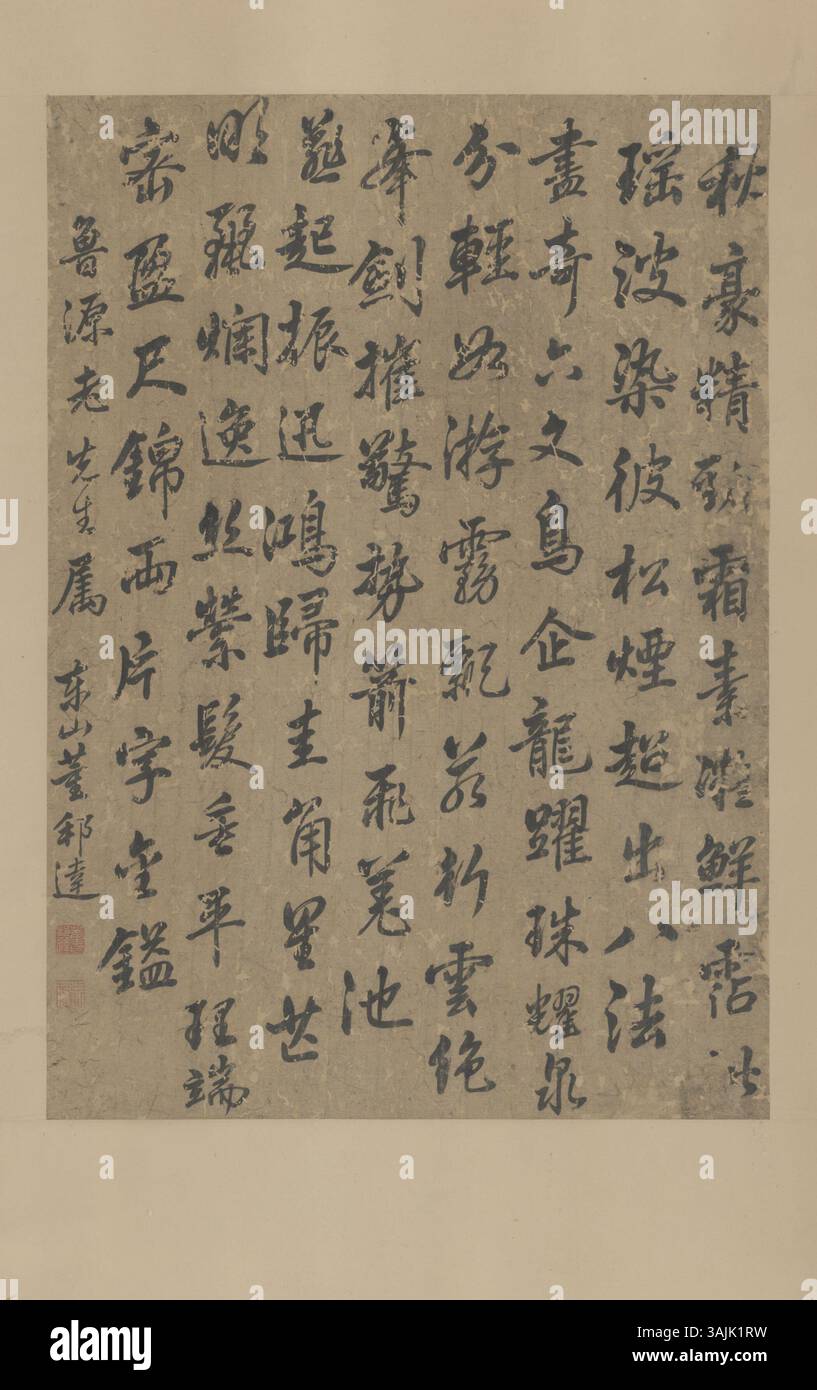 秋豪精勁霜素凝鮮霑此
瑤波染彼松煙超出八法
盡崎六文鳥企龍躍珠耀泉
分輕如游霧飄若雲絕
峯劍摧驚勢箭飛差池
燕起振迅鴻歸圭角星芒
明麗爛逸絲縈髮垂平理端
密盈尺錦兩片字金鎰
魯源老先生屬 東山董邦達
alamy
Image ID: 3AJK1RW
www.alamy.com